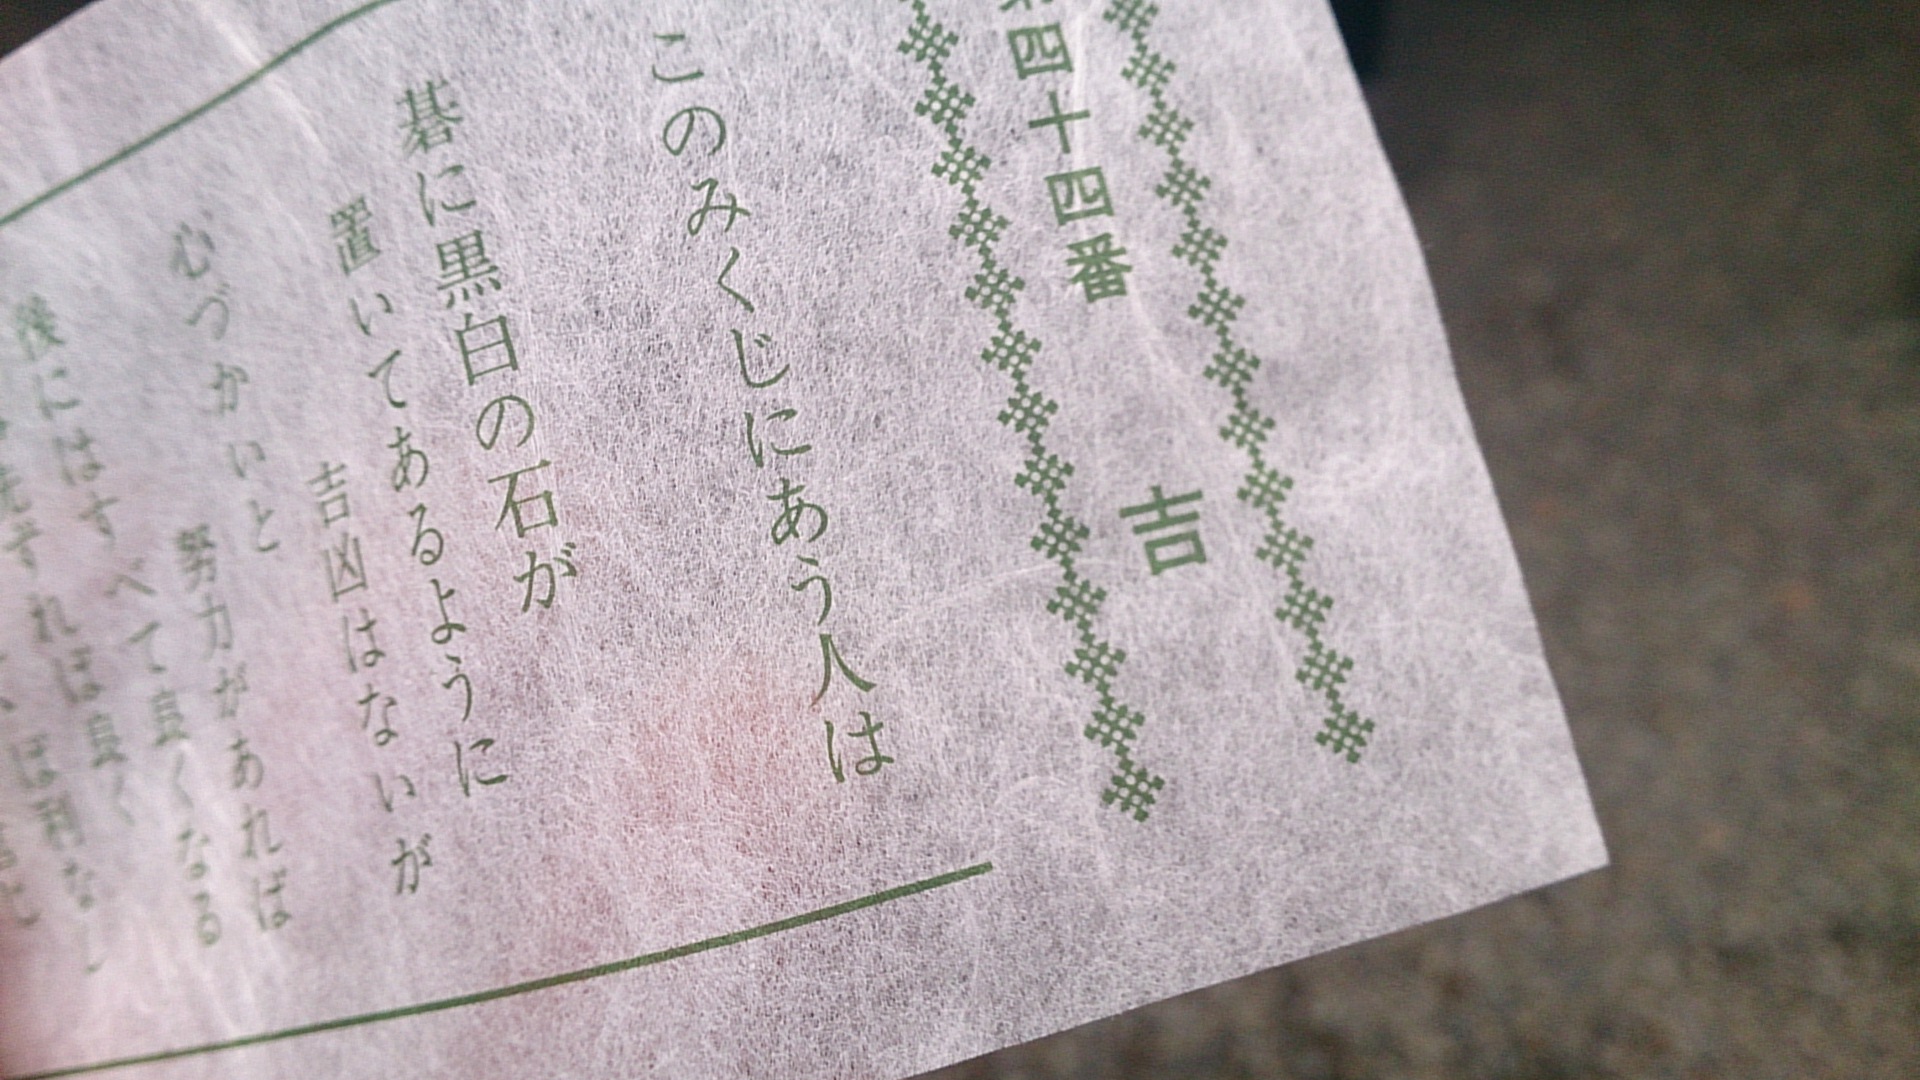 四十四番 吉
このみくじにあう人は
碁に黒白の石が
置いてあるように
吉凶はないが
心づかいと
努力があれば
後にはすべて良くなる
すれば良く
ほ利なし